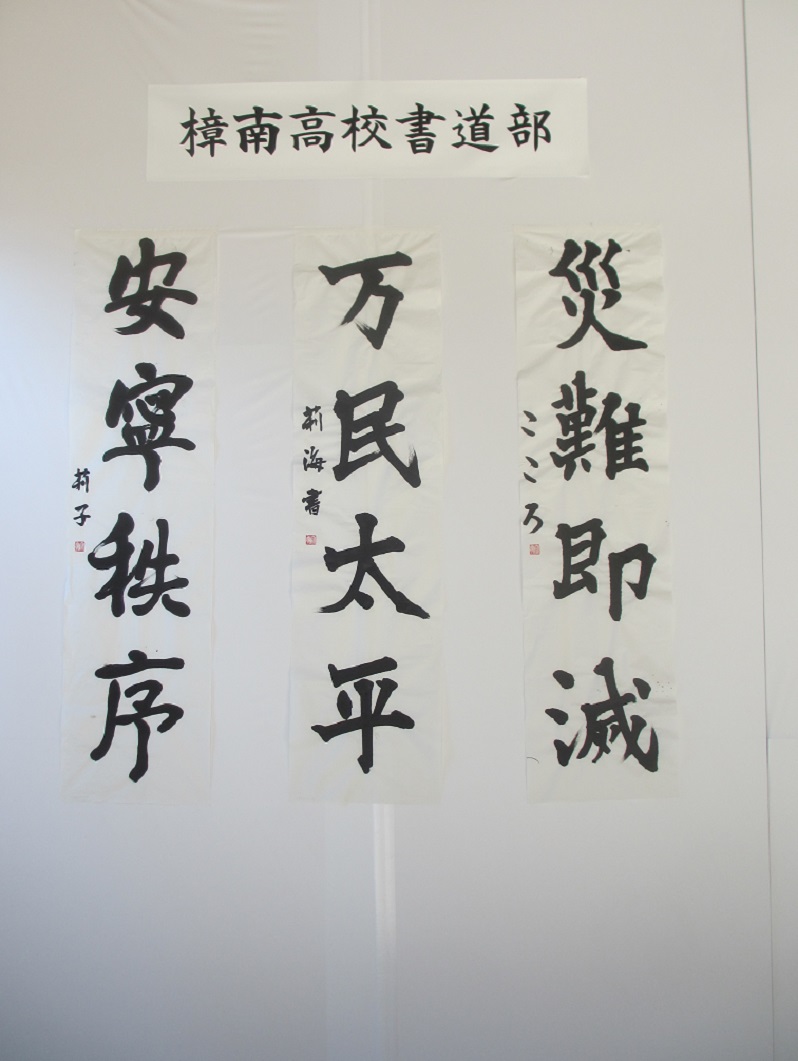 樟南高校書道部
災難即滅
こころ
万民太平
莉海書
安寧秩序
莉子